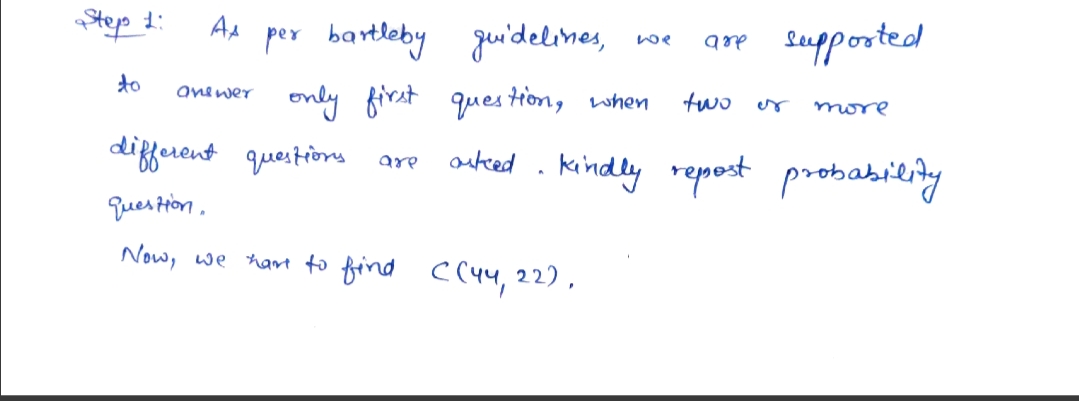 Step 1: As per bartleby guidelines, we are supported
to answer only first question, when two or more
different questions are asked. Kindly repost probability
question.
Now, we have to find C(44, 22).